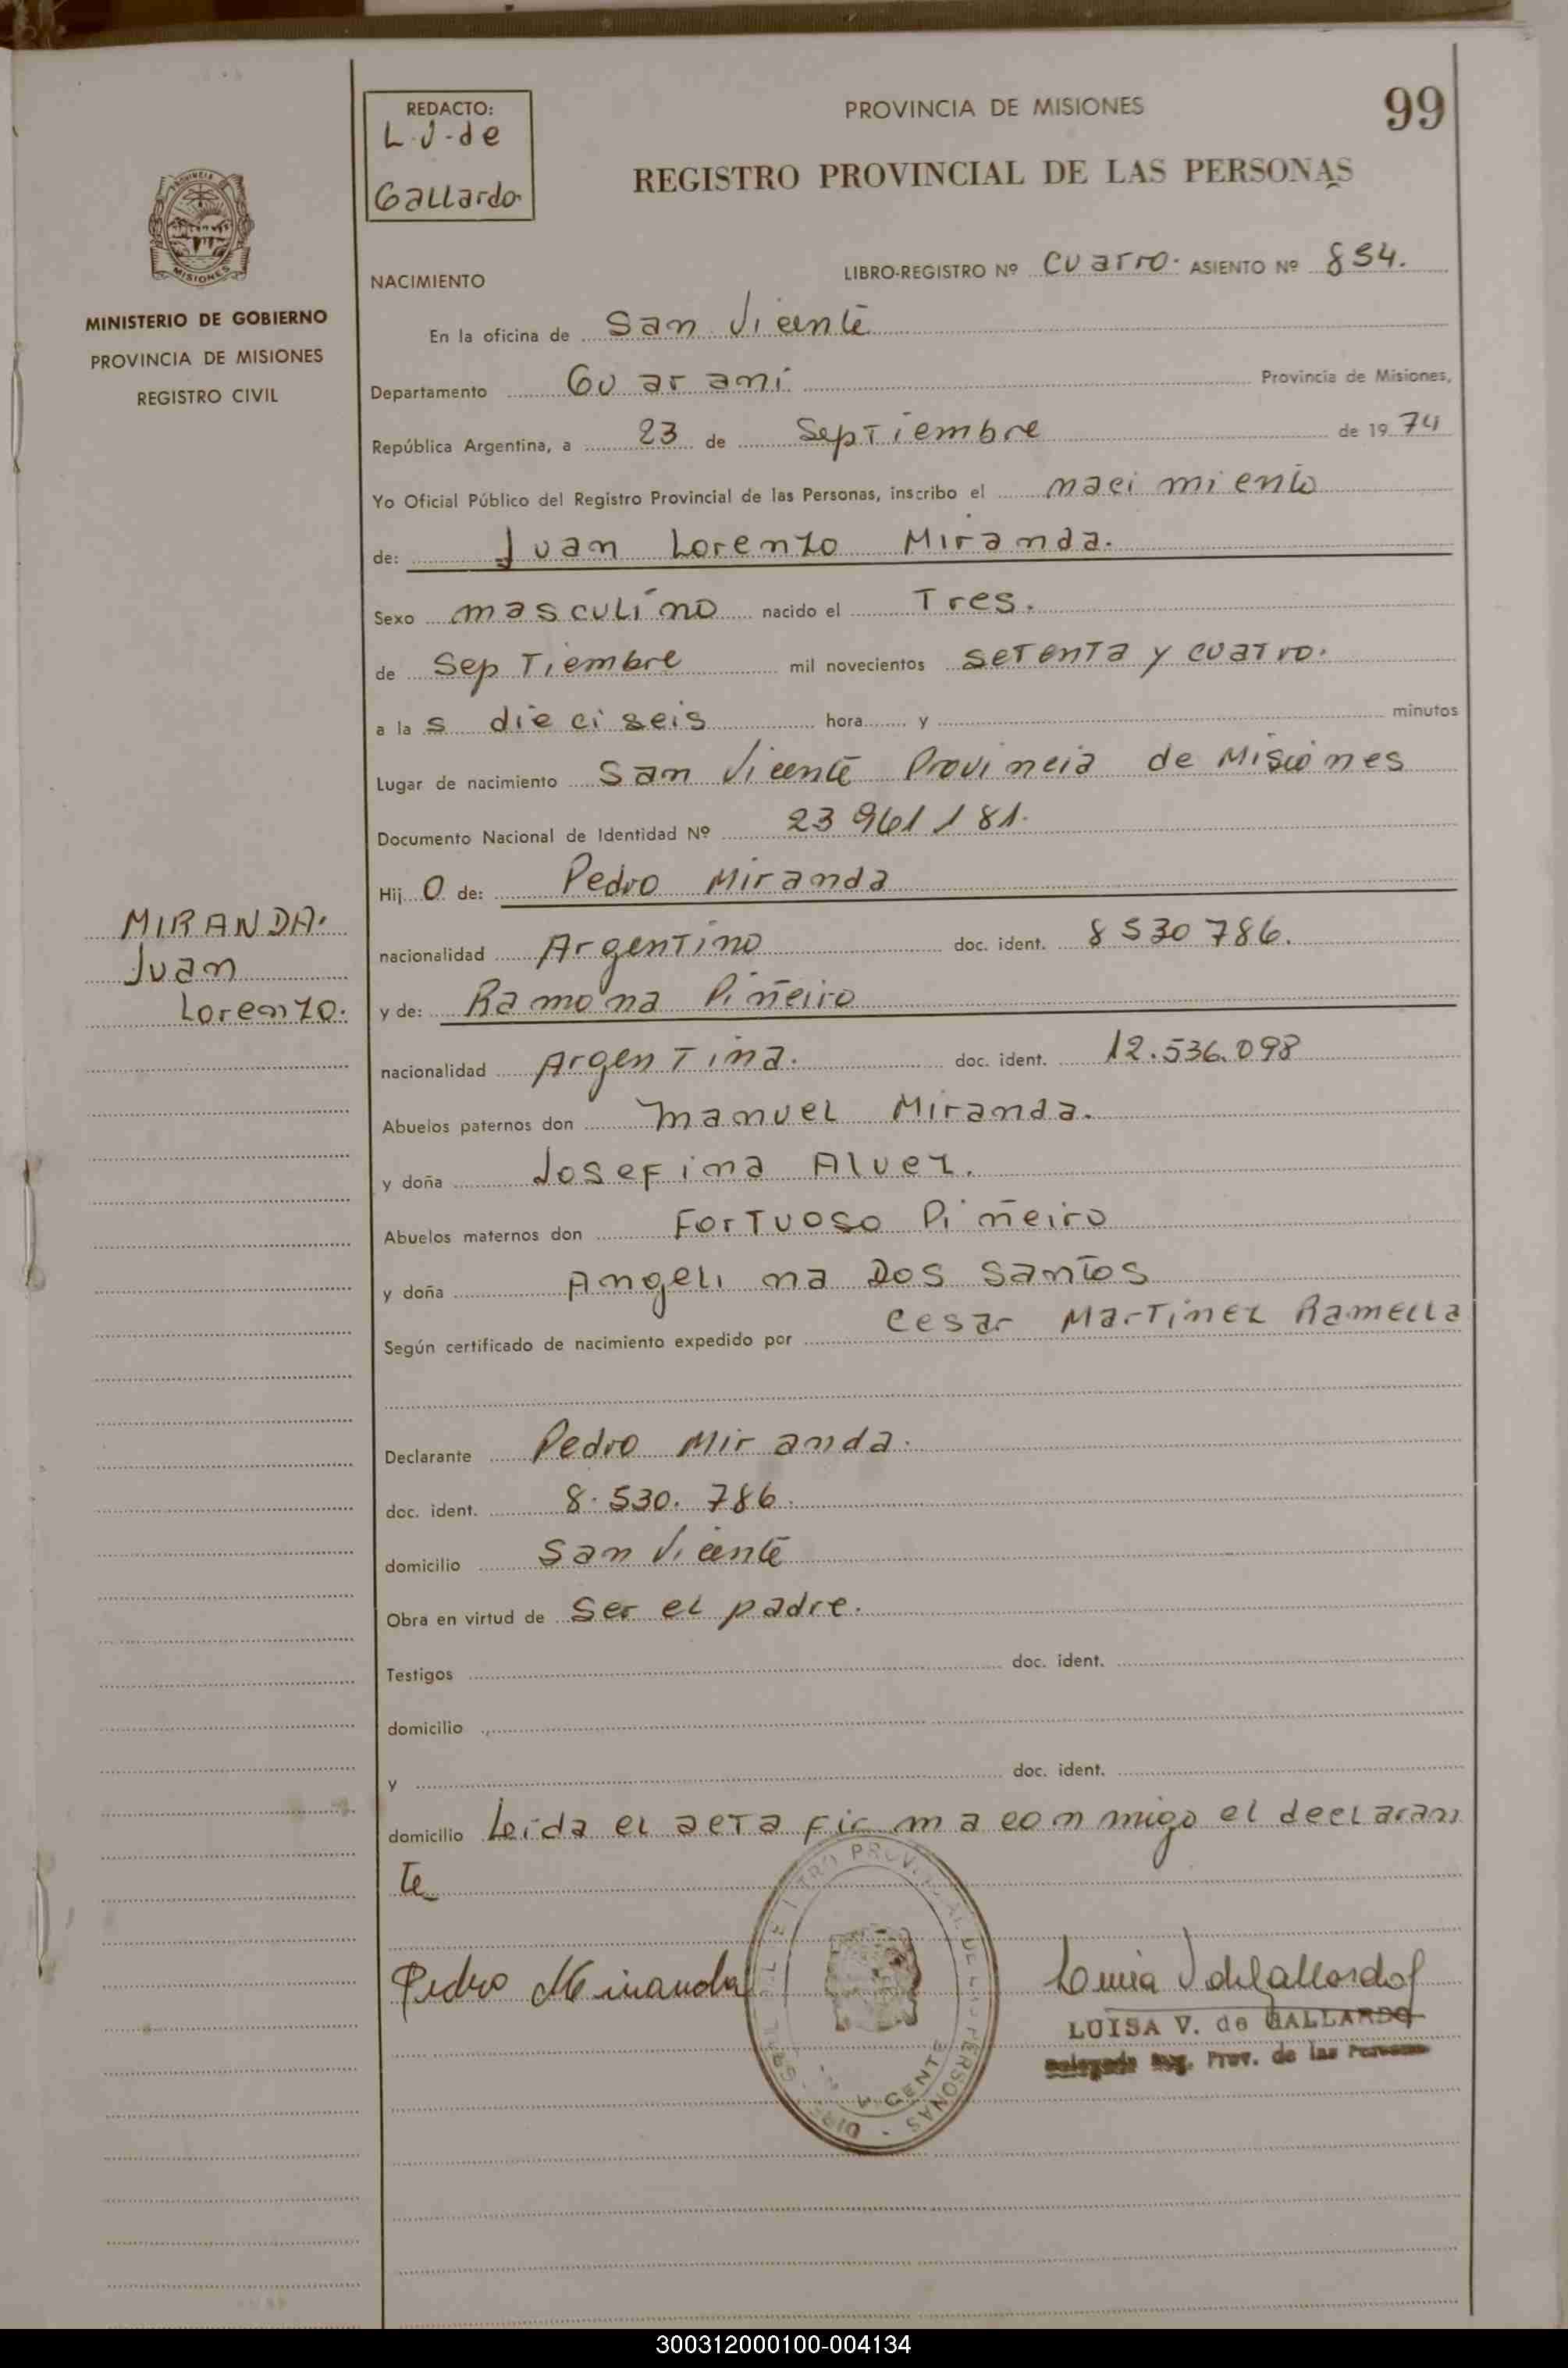 REDACTO:
L.J-de
Gallardo
PROVINCIA DE MISIONES
99
REGISTRO PROVINCIAL DE LAS PERSONAS
PROVINCIA
MISIONES
MINISTERIO DE GOBIERNO
PROVINCIA DE MISIONES
REGISTRO CIVIL
NACIMIENTO
LIBRO-REGISTRO Nº cuatro. ASIENTO Nº 854.
En la oficina de San Vicente
Departamento Guaraní Provincia de Misiones,
República Argentina, a 23 de Septiembre de 1974
Yo Oficial Público del Registro Provincial de las Personas, inscribo el nacimiento
de: Juan Lorenzo Miranda.
Sexo masculino nacido el Tres.
de Septiembre mil novecientos setenta y cuatro.
a las dieciseis hora y minutos
Lugar de nacimiento San Vicente Provincia de Misiones
Documento Nacional de Identidad Nº 23 961 181.
Hijo de: Pedro Miranda
nacionalidad Argentino doc. ident. 8530786.
y de: Ramona Piñeiro
nacionalidad Argentina. doc. ident. 12.536.098
Abuelos paternos don Manuel Miranda.
y doña Josefina Alvez.
Abuelos maternos don Fortuoso Piñeiro
y doña Angelina Dos Santos
Según certificado de nacimiento expedido por Cesar Martinez Ramella
Declarante Pedro Miranda.
doc. ident. 8.530.786.
domicilio San Vicente
Obra en virtud de ser el padre.
Testigos doc. ident.
domicilio
y doc. ident.
domicilio Leida el acta firma conmigo el declaran
te
MIRANDA.
Juan
Lorenzo.
Pedro Miranda
LUISA V. de GALLARDO
Delegada Reg. Prov. de las Personas
300312000100-004134